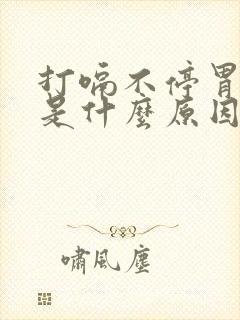 打嗝不停胃
是什麼原因
嘯風塵